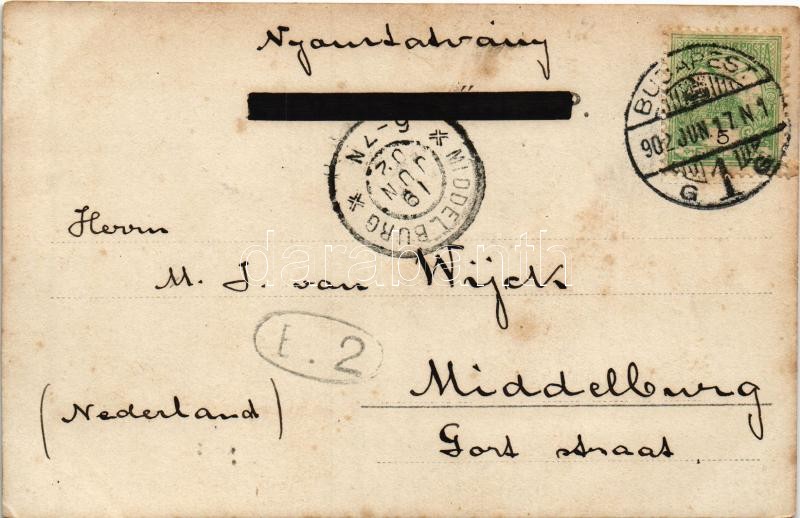 Nyomtatvány
BUDAPEST
902 JUN 17 N 1
5
G 1
MIDDELBURG
19 JUN 02
6-7N
Herrn
M. J. van Wijck
E. 2
Middelburg
(Nederland)
Gort straat
darabanth